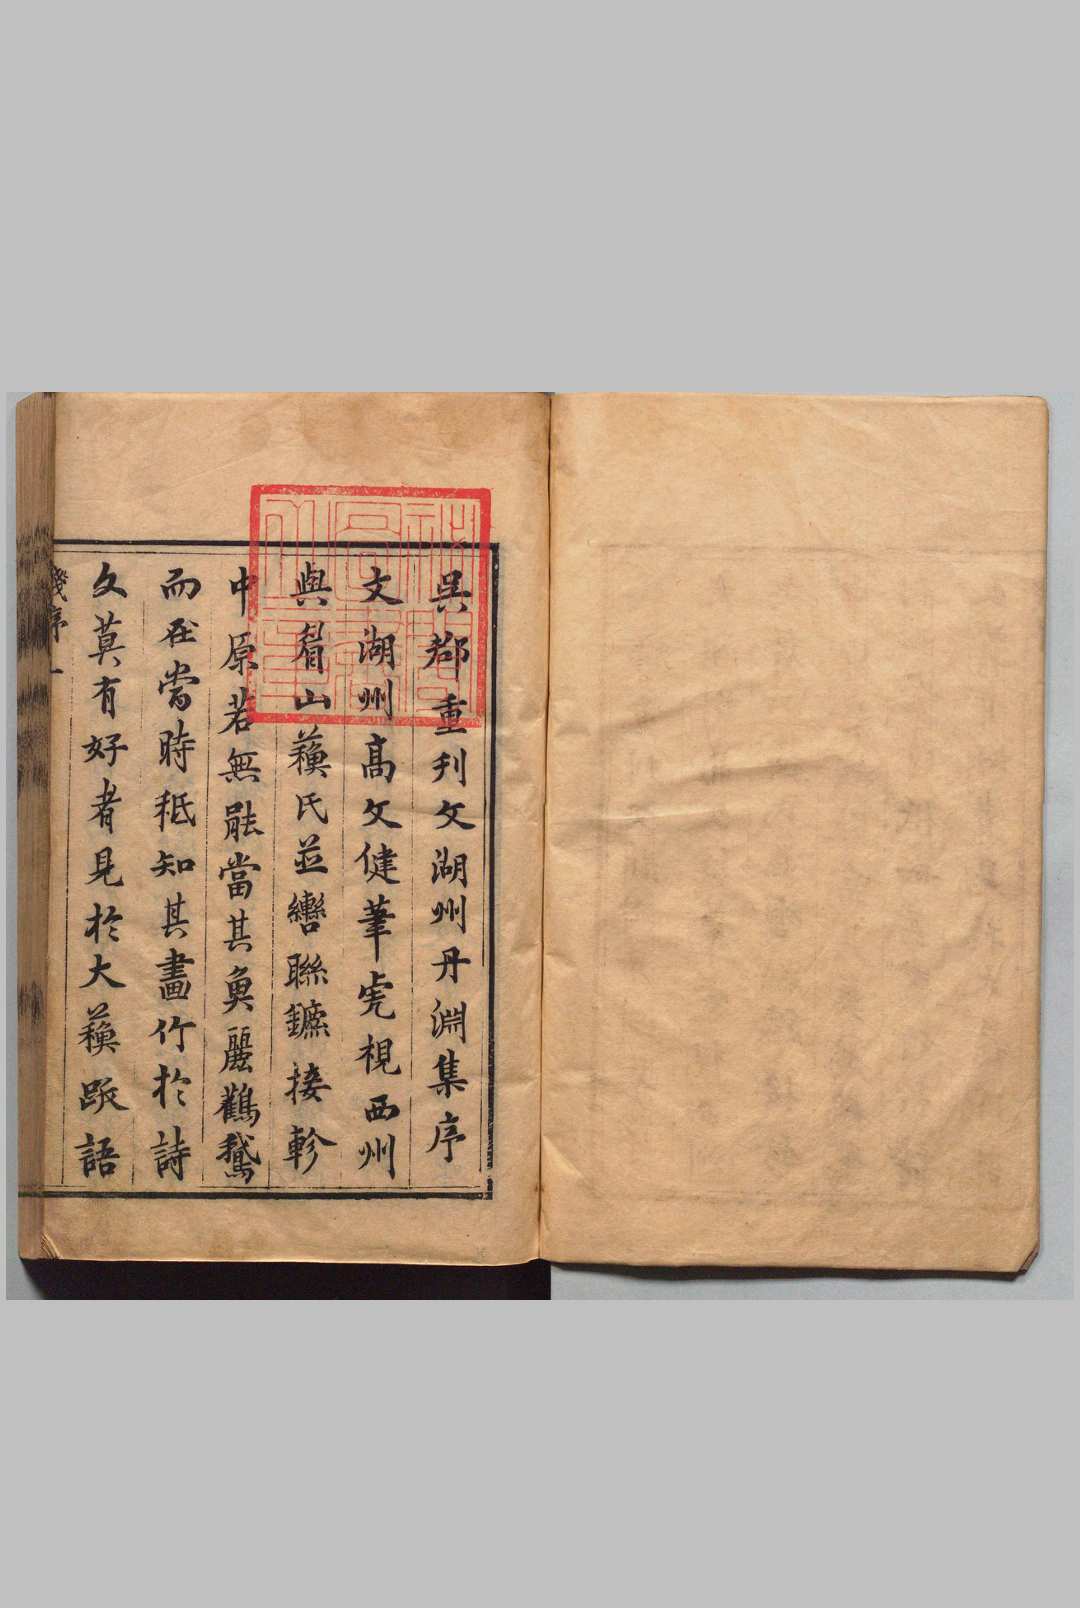 吳郡重刊文湖州丹淵集序
文湖州高文健筆虎視西州
與眉山蘓氏並轡聯鑣接軫
中原若無能當其魚麗鸛鵞
而在當時秪知其畫竹於詩
文莫有好者見於大蘓䟦語
錢序 一